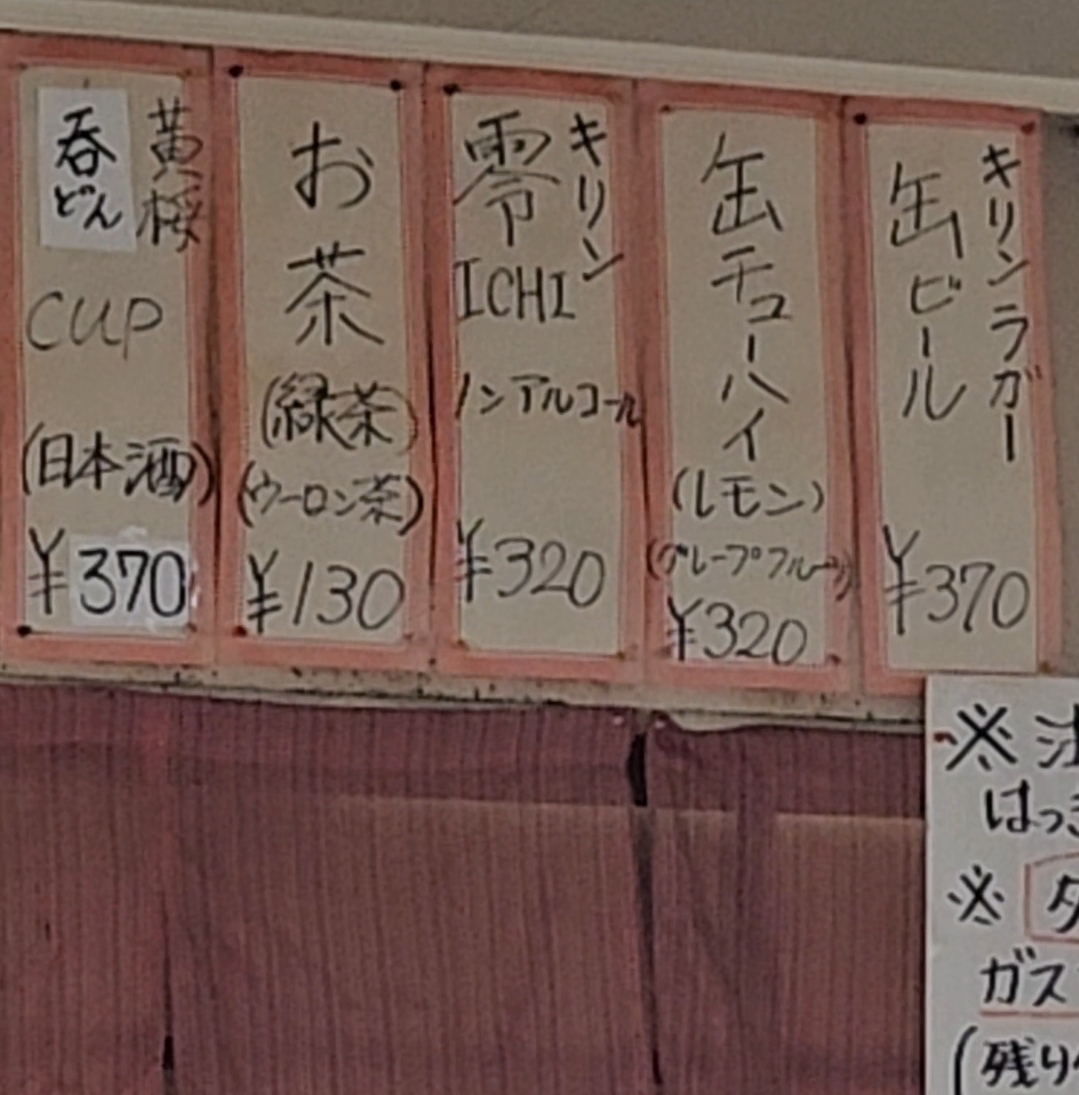 キリンラガー
缶ビール
¥370
缶チューハイ
(レモン)
(グレープフルーツ)
¥320
キリン
零
ICHI
ノンアルコール
¥320
お茶
(緑茶)
(ウーロン茶)
¥130
黄桜
呑
どん
CUP
(日本酒)
¥370
※
はっき
※
ガス
(残り